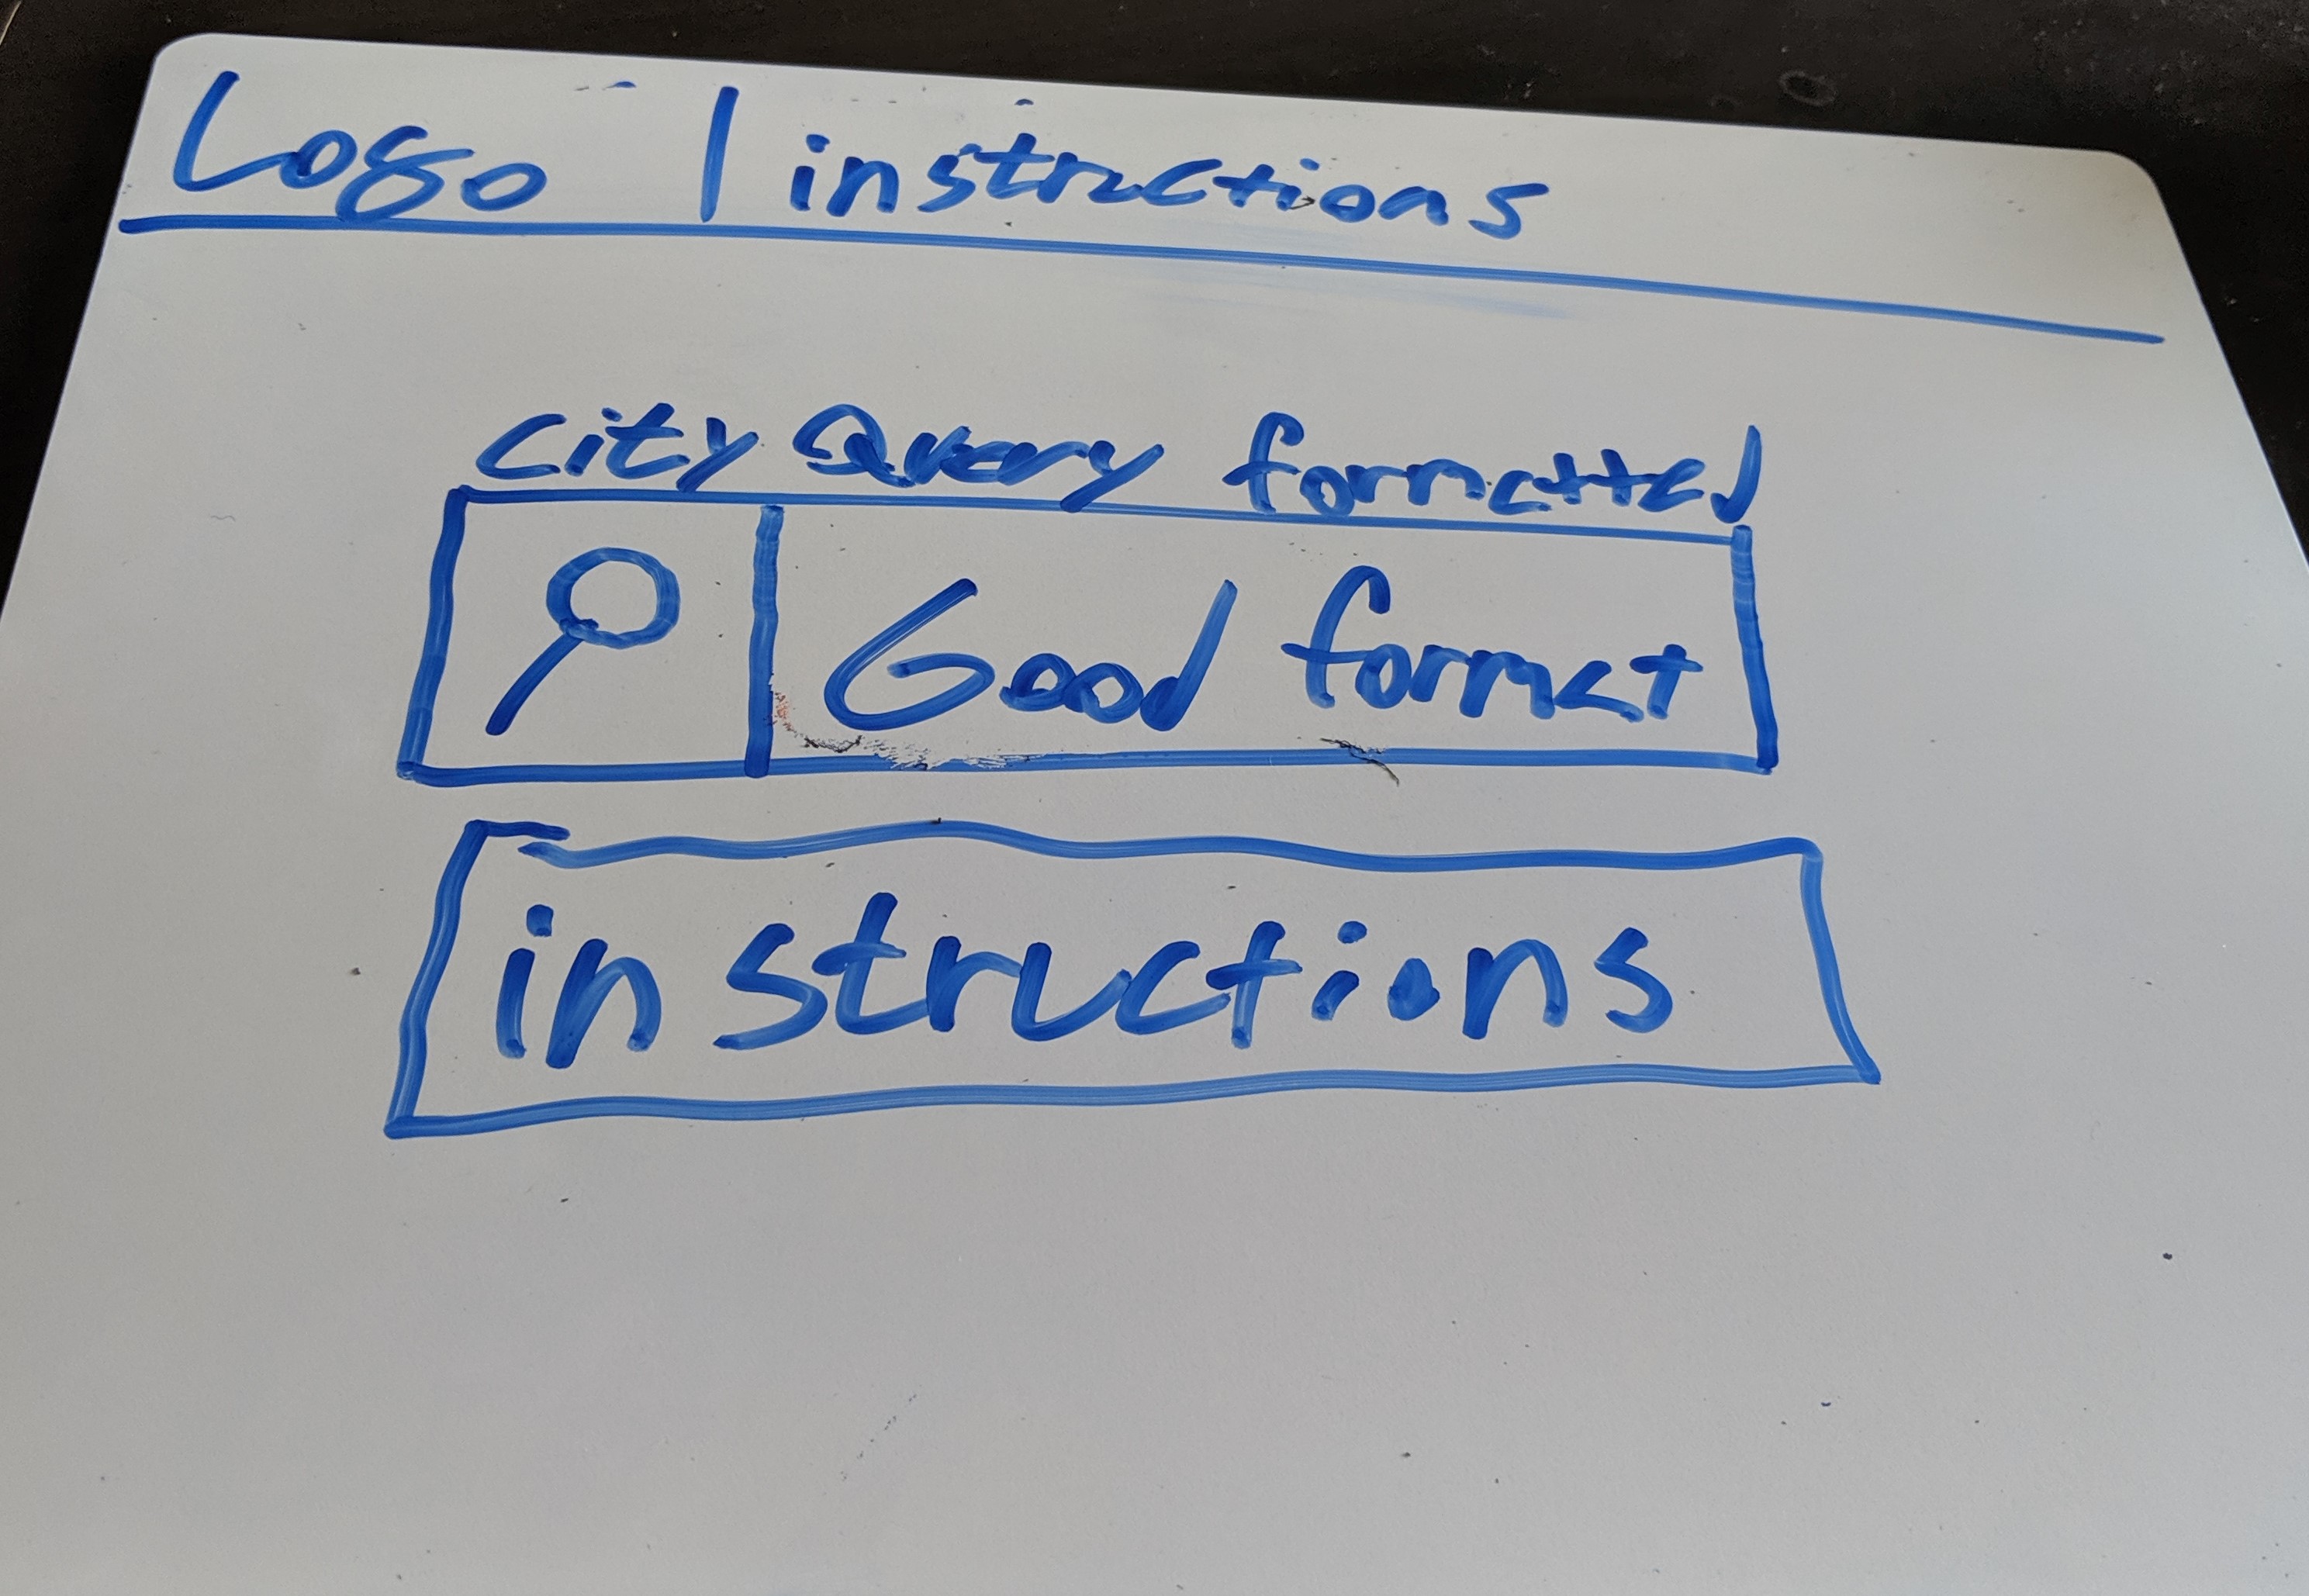 Logo | instructions
City Query formatted
Good format
instructions